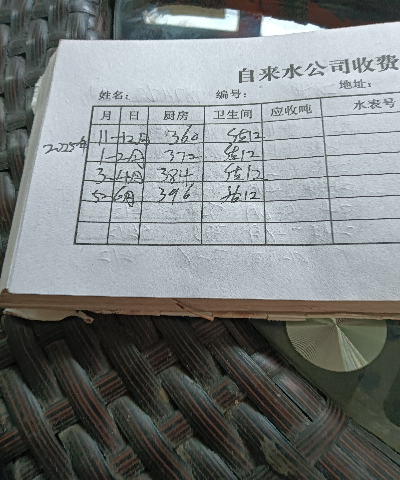 自来水公司收费
姓名： 编号： 地址：
月 日 厨房 卫生间 应收吨 水表号
11-12月 360 估12
2025年 1-2月 372 估12
3-4月 384 估12
5-6月 396 估12